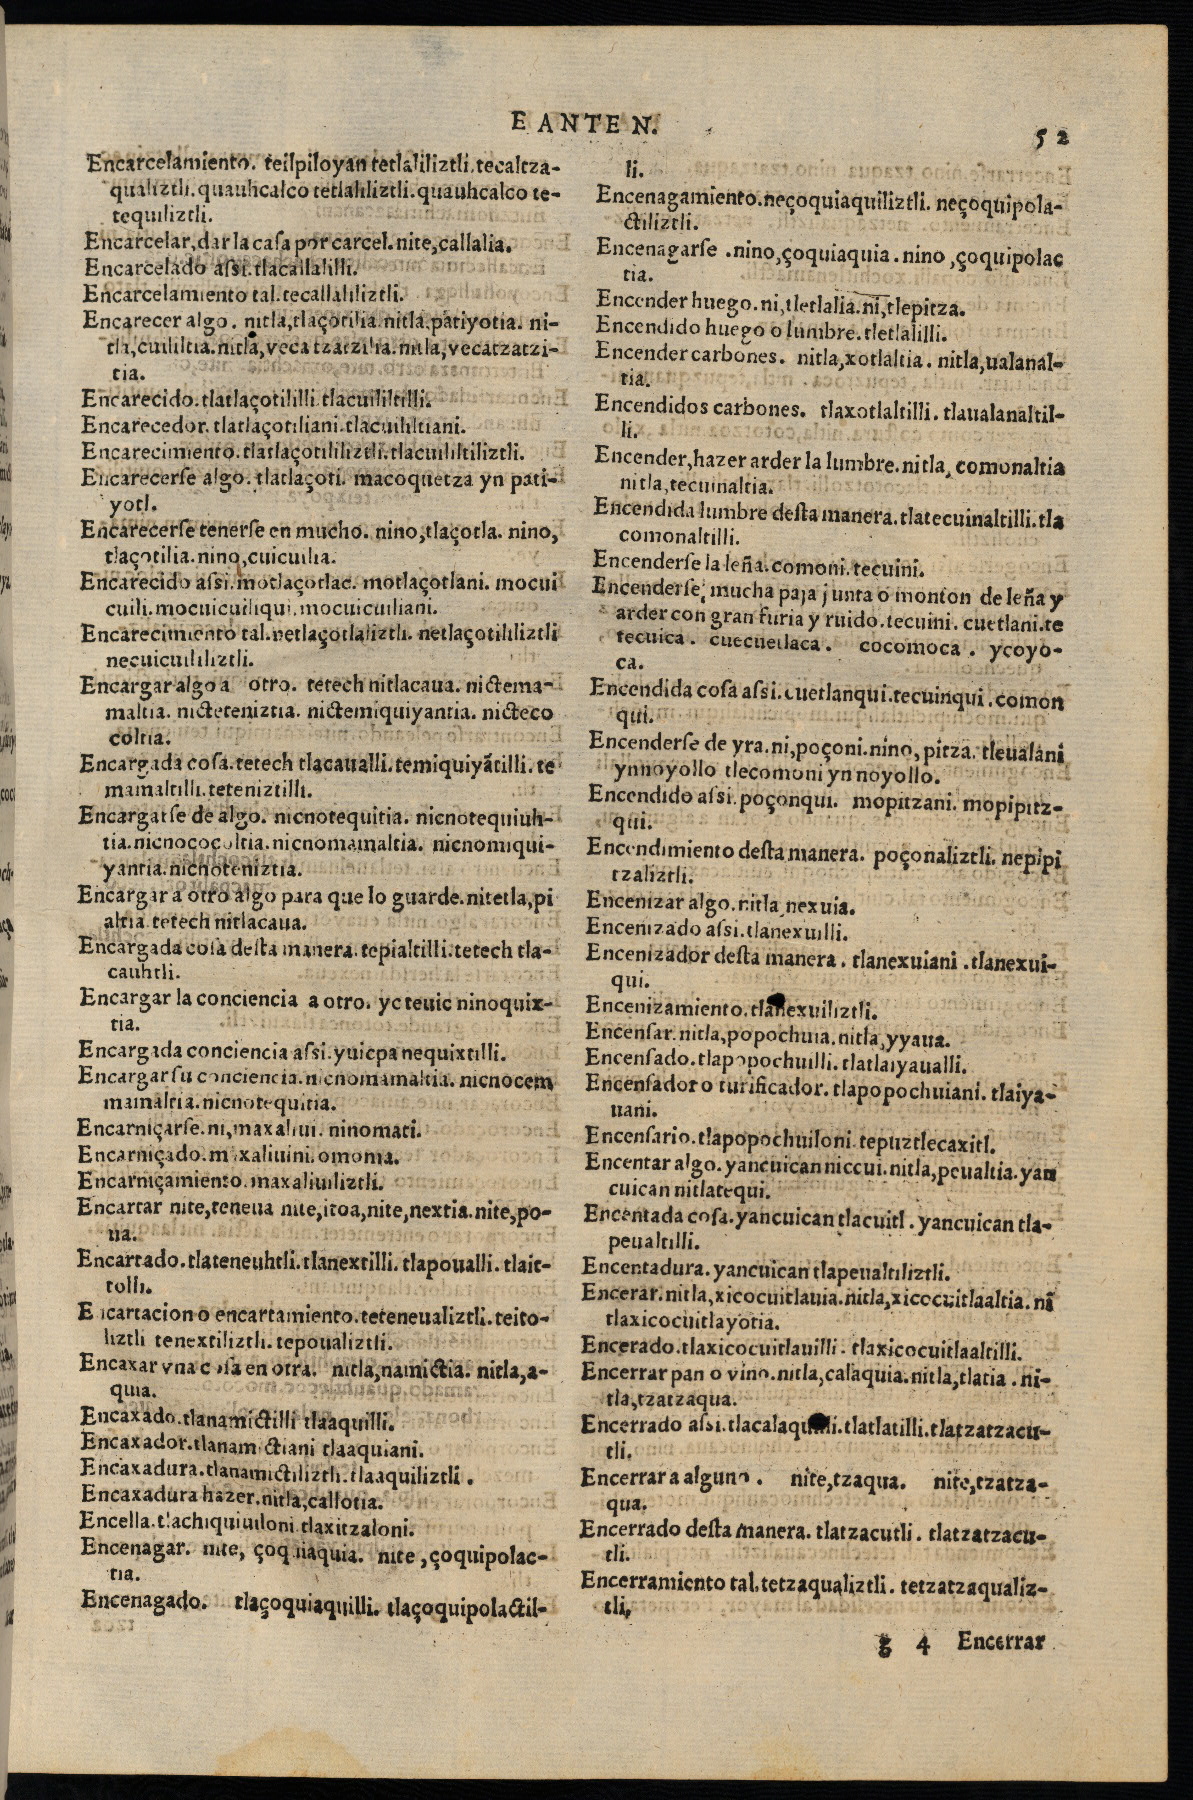 E ANTE N.
52
Encarcelamiento. teilpiloyan tetlaliliztli.tecaltza-
qualiztli.quauhcalco tetlaliliztli.quauhcalco te-
tequiliztli.
Encarcelar,dar la casa por carcel.nite,callalia.
Encarcelado assi.tlacallalilli.
Encarcelamiento tal.tecallaliliztli.
Encarecer algo. nitla,tlaçotilia.nitla.patiyotia. ni-
tla,cuililtia.nitla,veca tzatzilia.nitla,vecatzatzi-
tia.
Encarecido.tlatlaçotililli.tlacuililtilli.
Encarecedor.tlatlaçotiliani.tlacuililtiani.
Encarecimiento.tlatlaçotililiztli.tlacuililtiliztli.
Encarecerse algo. tlatlaçoti. macoquetza yn pati-
yotl.
Encarecerse tenerse en mucho. nino,tlaçotla. nino,
tlaçotilia.nino,cuicuilia.
Encarecido assi.motlaçotlac. motlaçotlani. mocui
cuili.mocuicuiliqui.mocuicuiliani.
Encarecimiento tal.netlaçotlaliztli. netlaçotililiztli
necuicuililiztli.
Encargar algo a otro. tetech nitlacaua. nictema-
maltia. nicteteniztia. nictemiquiyantia. nicteco
coltia.
Encargada cosa.tetech tlacaualli.temiquiyãtilli.te
mamaltilli.teteniztilli.
Encargarse de algo. nicnotequitia. nicnotequiuh-
tia.nicnococoltia.nicnomamaltia. nicnomiqui-
yantia.nicnoteniztia.
Encargar a otro algo para que lo guarde.nitetla,pi
altia.tetech nitlacaua.
Encargada cosa desta manera.tepialtilli.tetech tla-
cauhtli.
Encargar la conciencia a otro. yc teuic ninoquix-
tia.
Encargada conciencia assi.yuicpa nequixtilli.
Encargar su conciencia.nicnomamaltia. nicnocem
mamaltia.nicnotequitia.
Encarniçarse.ni,maxaliui. ninomati.
Encarniçado.maxaliuini.omoma.
Encarniçamiento.maxaliuiliztli.
Encartar nite,teneua nite,itoa,nite,nextia.nite,po-
ua.
Encartado.tlateneuhtli.tlanextilli.tlapoualli.tlait-
tolli.
Encartacion o encartamiento.teteneualiztli.teito-
liztli tenextiliztli.tepoualiztli.
Encaxar vna cosa en otra. nitla,namictia. nitla,a-
quia.
Encaxado.tlanamictilli tlaaquilli.
Encaxador.tlanamictiani tlaaquiani.
Encaxadura.tlanamictiliztli.tlaaquiliztli.
Encaxadura hazer.nitla,callotia.
Encella.tlachiquiuiloni.tlaxitzaloni.
Encenagar. nite, çoquiaquia. nite,çoquipolac-
tia.
Encenagado. tlaçoquiaquilli. tlaçoquipolactil-
li.
Encenagamiento.neçoquiaquiliztli. neçoquipola-
ctiliztli.
Encenagarse.nino,çoquiaquia.nino,çoquipolac
tia.
Encender huego.ni,tletlalia.ni,tlepitza.
Encendido huego o lumbre.tletlalilli.
Encender carbones. nitla,xotlaltia. nitla,ualanal-
tia.
Encendidos carbones. tlaxotlaltilli. tlaualanaltil-
li.
Encender,hazer arder la lumbre.nitla, comonaltia
nitla,tecuinaltia.
Encendida lumbre desta manera.tlatecuinaltilli.tla
comonaltilli.
Encenderse la leña.comoni.tecuini.
Encenderse, mucha paja junta o monton de leña y
arder con gran furia y ruido.tecuini. cuetlani.te
tecuica. cuecuetlaca. cocomoca. ycoyo-
ca.
Encendida cosa assi.cuetlanqui.tecuinqui.comon
qui.
Encenderse de yra.ni,poçoni.nino,pitza.tleualani
ynnoyollo tlecomoni yn noyollo.
Encendido assi.poçonqui. mopitzani. mopipitz-
qui.
Encendimiento desta manera. poçonaliztli. nepipi
tzaliztli.
Encenizar algo.nitla,nexuia.
Encenizado assi.tlanexuilli.
Encenizador desta manera. tlanexuiani.tlanexui-
qui.
Encenizamiento.tlanexuiliztli.
Encensar.nitla,popochuia.nitla,yyaua.
Encensado.tlapopochuilli.tlatlaiyaualli.
Encensador o turificador. tlapopochuiani. tlaiya-
uani.
Encensario.tlapopochuiloni.tepuztlecaxitl.
Encentar algo.yancuican niccui.nitla,peualtia.yan
cuican nitlatequi.
Encentada cosa.yancuican tlacuitl.yancuican tla-
peualtilli.
Encentadura.yancuican tlapeualtiliztli.
Encerar.nitla,xicocuitlauia.nitla,xicocuitlaaltia.ni
tlaxicocuitlayotia.
Encerado.tlaxicocuitlauilli. tlaxicocuitlaaltilli.
Encerrar pan o vino.nitla,calaquia.nitla,tlatia.ni-
tla,tzatzaqua.
Encerrado assi.tlacalaquilli.tlatlatilli.tlatzatzacu-
tli.
Encerrar a alguno. nite,tzaqua. nite,tzatza-
qua.
Encerrado desta manera. tlatzacutli. tlatzatzacu-
tli.
Encerramiento tal.tetzaqualiztli. tetzatzaqualiz-
tli,
g 4 Encerrar